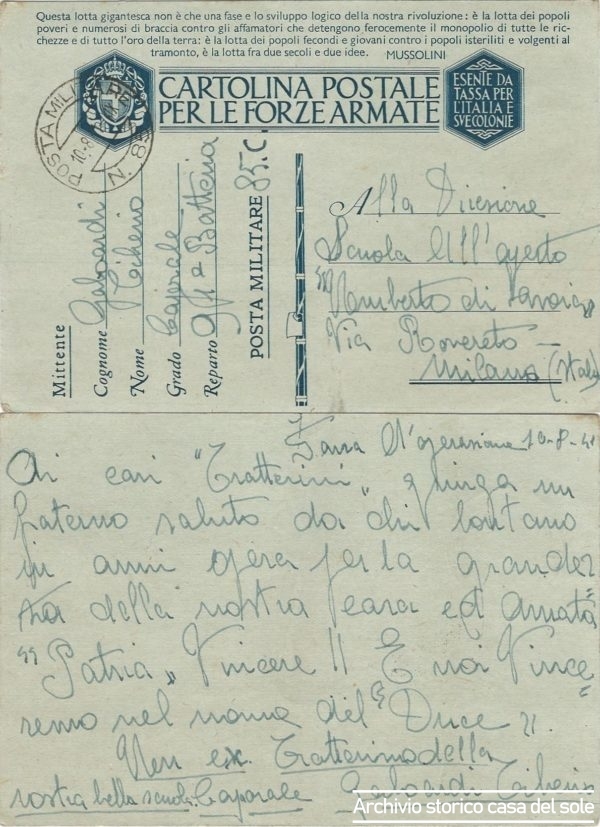 Questa lotta gigantesca non è che una fase e lo sviluppo logico della nostra rivoluzione: è la lotta dei popoli
poveri e numerosi di braccia contro gli affamatori che detengono ferocemente il monopolio di tutte le ric-
chezze e di tutto l'oro della terra: è la lotta dei popoli fecondi e giovani contro i popoli isteriliti e volgenti al
tramonto, è la lotta fra due secoli e due idee. MUSSOLINI
CARTOLINA POSTALE
PER LE FORZE ARMATE
ESENTE DA
TASSA PER
L'ITALIA E
SVE COLONIE
POSTA MILITARE N. 85
10.8
Mittente
Cognome Galoardi
Nome Tiberio
Grado Caporale
Reparto 9ª Batteria
POSTA MILITARE 85.C.
Alla Direzione
Scuola All'aperto
"Umberto di Savoia"
Via Rovereto -
Milano (Italia)
Zona d'operazione 10-8-41
Ai cari "Trotterini" giunga un
fraterno saluto da chi lontano
in armi opera per la grandez
za della nostra cara ed amata
"Patria" Vincere!! E noi Vince
remo nel nome del "Duce"
Un ex Trotterino della
nostra bella scuola. Caporale Galoardi Tiberio
Archivio storico casa del sole